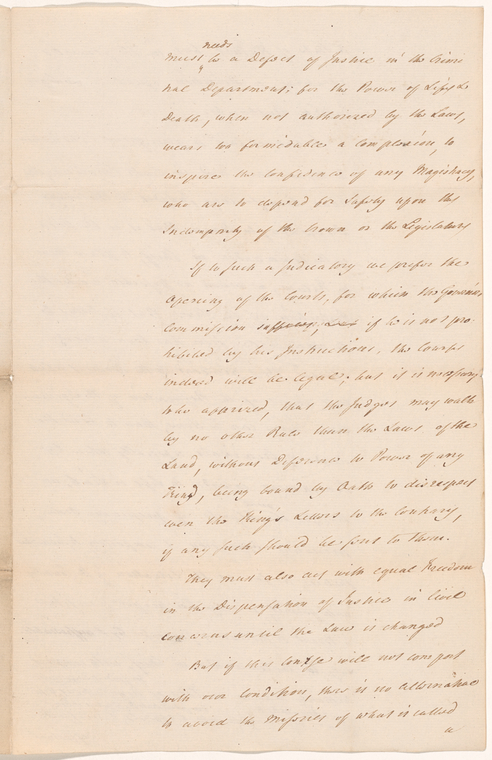 needs
must be a Defect of Justice in the Crimi
nal Department; for the Power of Life &
Death, when not authorized by the Laws,
wears too formidable a complexion, to
inspire the Confidence of any Magistracy,
who are to depend for Safety upon the
Indemnity of the Crown or the Legislature
If to such a Judicatory we prefer the
opening of the Courts, for which the Governors
Commission suffices, if he is not pro
hibited by his Instructions, the Courts
indeed will be legal; but it is necessary
to be apprized, that the Judges may walk
by no other Rule than the Laws of the
Land, without Deference to Power of any
Kind, being bound by Oath to disrespect
even the King's Letters to the contrary,
if any such should be sent to them.
They must also act with equal Freedom
in the Dispensation of Justice in Civil
concerns until the Law is changed
But if this Course will not comport
with our condition, there is no alternative
to avoid the Miseries of what is called
a